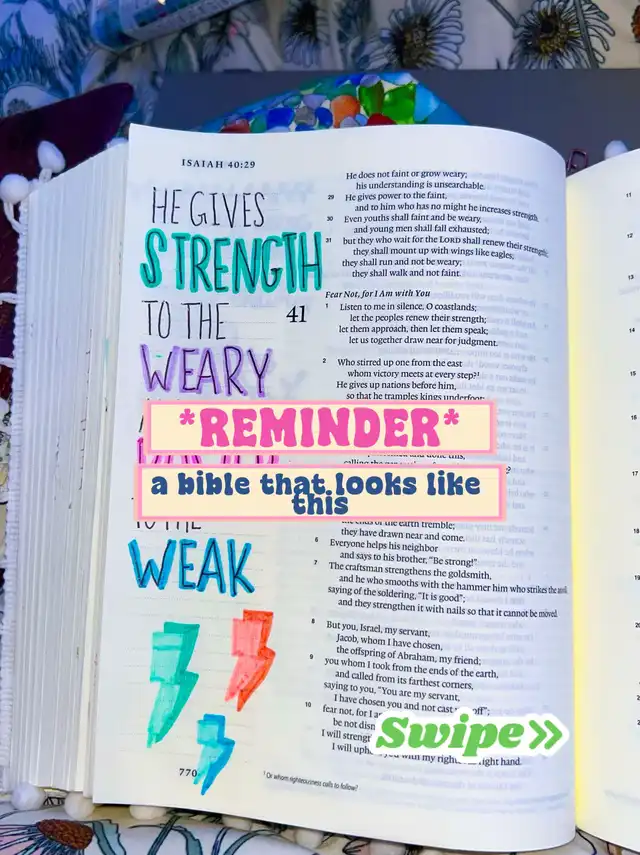 ISAIAH 40:29
HE GIVES
STRENGTH
TO THE
WEARY
*REMINDER*
a bible that looks like
this
TO THE
WEAK
770
He does not faint or grow weary;
his understanding is unsearchable.
29 He gives power to the faint,
and to him who has no might he increases strength.
30 Even youths shall faint and be weary,
and young men shall fall exhausted;
31 but they who wait for the LORD shall renew their strength;
they shall mount up with wings like eagles;
they shall run and not be weary;
they shall walk and not faint.
Fear Not, for I Am with You
41
1 Listen to me in silence, O coastlands;
let the peoples renew their strength;
let them approach, then let them speak;
let us together draw near for judgment.
2 Who stirred up one from the east
whom victory meets at every step?¹
He gives up nations before him,
so that he tramples kings underfoot;
of the earth tremble;
they have drawn near and come.
6 Everyone helps his neighbor
and says to his brother, "Be strong!"
7 The craftsman strengthens the goldsmith,
and he who smooths with the hammer him who strikes the anvil,
saying of the soldering, "It is good";
and they strengthen it with nails so that it cannot be moved.
8 But you, Israel, my servant,
Jacob, whom I have chosen,
the offspring of Abraham, my friend;
9 you whom I took from the ends of the earth,
and called from its farthest corners,
saying to you, "You are my servant,
I have chosen you and not cast off";
10 fear not, for I
be not
I will
I will with my right hand.
Swipe>>
¹ Or whom righteousness calls to follow?
11
12
13
14
15
16
17
18
19
20